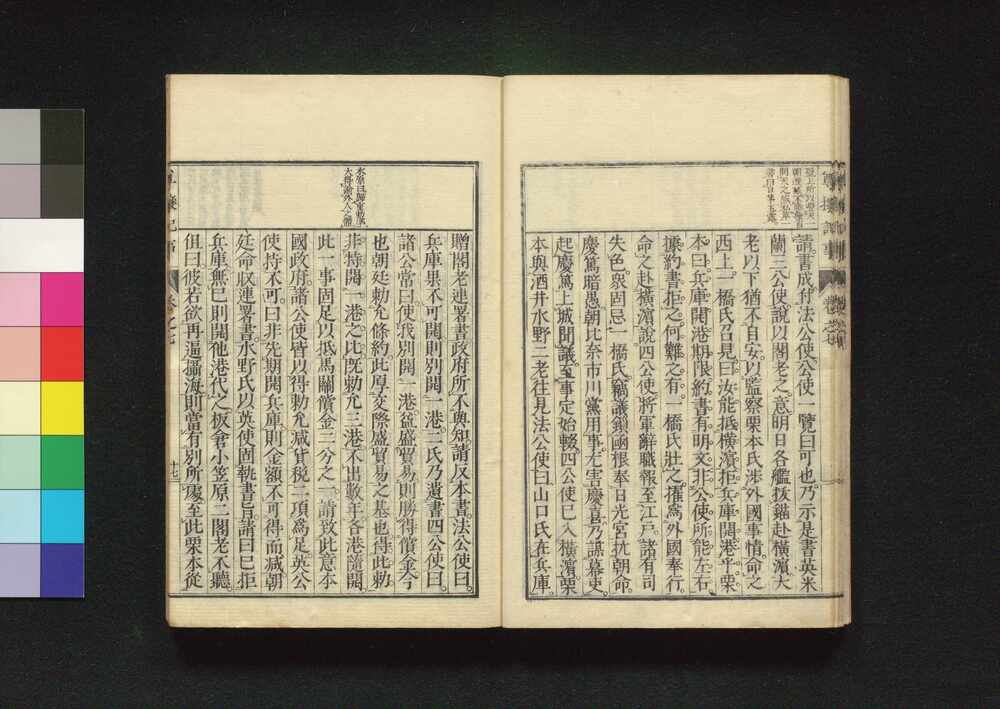 請。書成付法公使。公使一覽曰可也。乃示是書英米
蘭三公使。說以閣老之意。明日各艦拔錨赴橫濱。大
老以下猶不自安。以監察栗本氏涉外國事情。命之
西上。一橋氏召見曰。汝能抵橫濱拒兵庫開港乎。栗
本曰。兵庫開港期限。約書有明文。非公使所能左右。
據約書拒之。何難之有。一橋氏壯之。擢爲外國奉行。
命之赴橫濱說四公使。將軍辭職報至江戶。諸有司
失色。衆固忌一橋氏。竊議鎖國根奉日光宮抗朝命。
慶篤暗愚。朝比奈市川黨用事。尤害慶喜。乃謀幕吏。
起慶篤上城聞議。至事定始輟。四公使已入橫濱。栗
本與酒井水野二老往見法公使。曰。山口氏在兵庫。
贈閣老連署書。政府所不與知。請反本書。法公使曰。
兵庫果不可開。則別開一港。二氏乃遺書四公使曰。
諸公常曰。使我別開一港。益盛貿易。則勝得償金。今
也朝廷勅允條約。此厚交際盛貿易之基也。得此勅
非特開一港之比。既勅允三港。不出數年。各港諳開。
此一事固足以抵馬關償金二分之一。請致此意本
國政府。諸公使皆以得勅允減貨稅二項爲足。英公
使持不可。曰。非先期開兵庫。則金額不可得而減。朝
廷命收連署書。水野氏以英使固執書旨。請曰。已拒
兵庫。無已則開他港代之。板倉小笠原二閣老不聽。
但曰。彼若欲再逼攝海。則當有別所處。至此栗本從
卷之七
十三